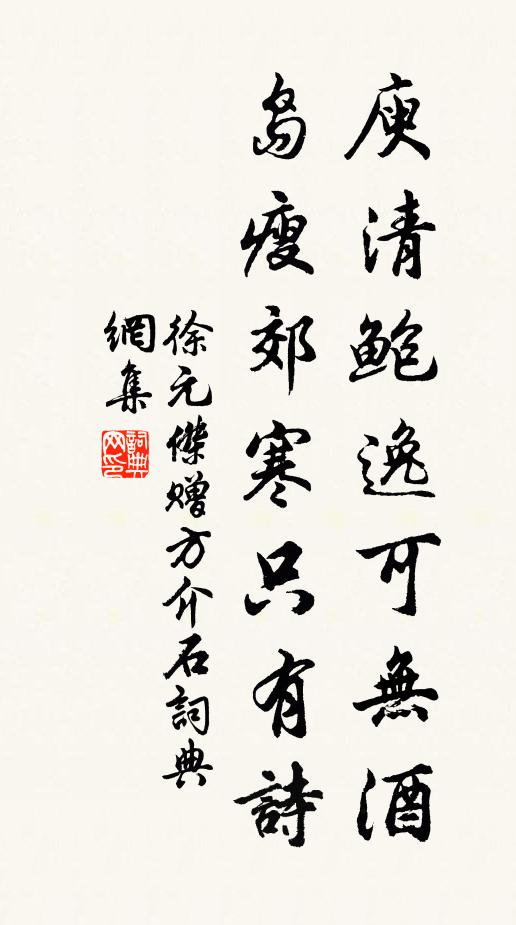 庾清鲍逸可無酒
島瘦郊寒只有詩
徐元傑赠方介石詞典
網集
詞典网印